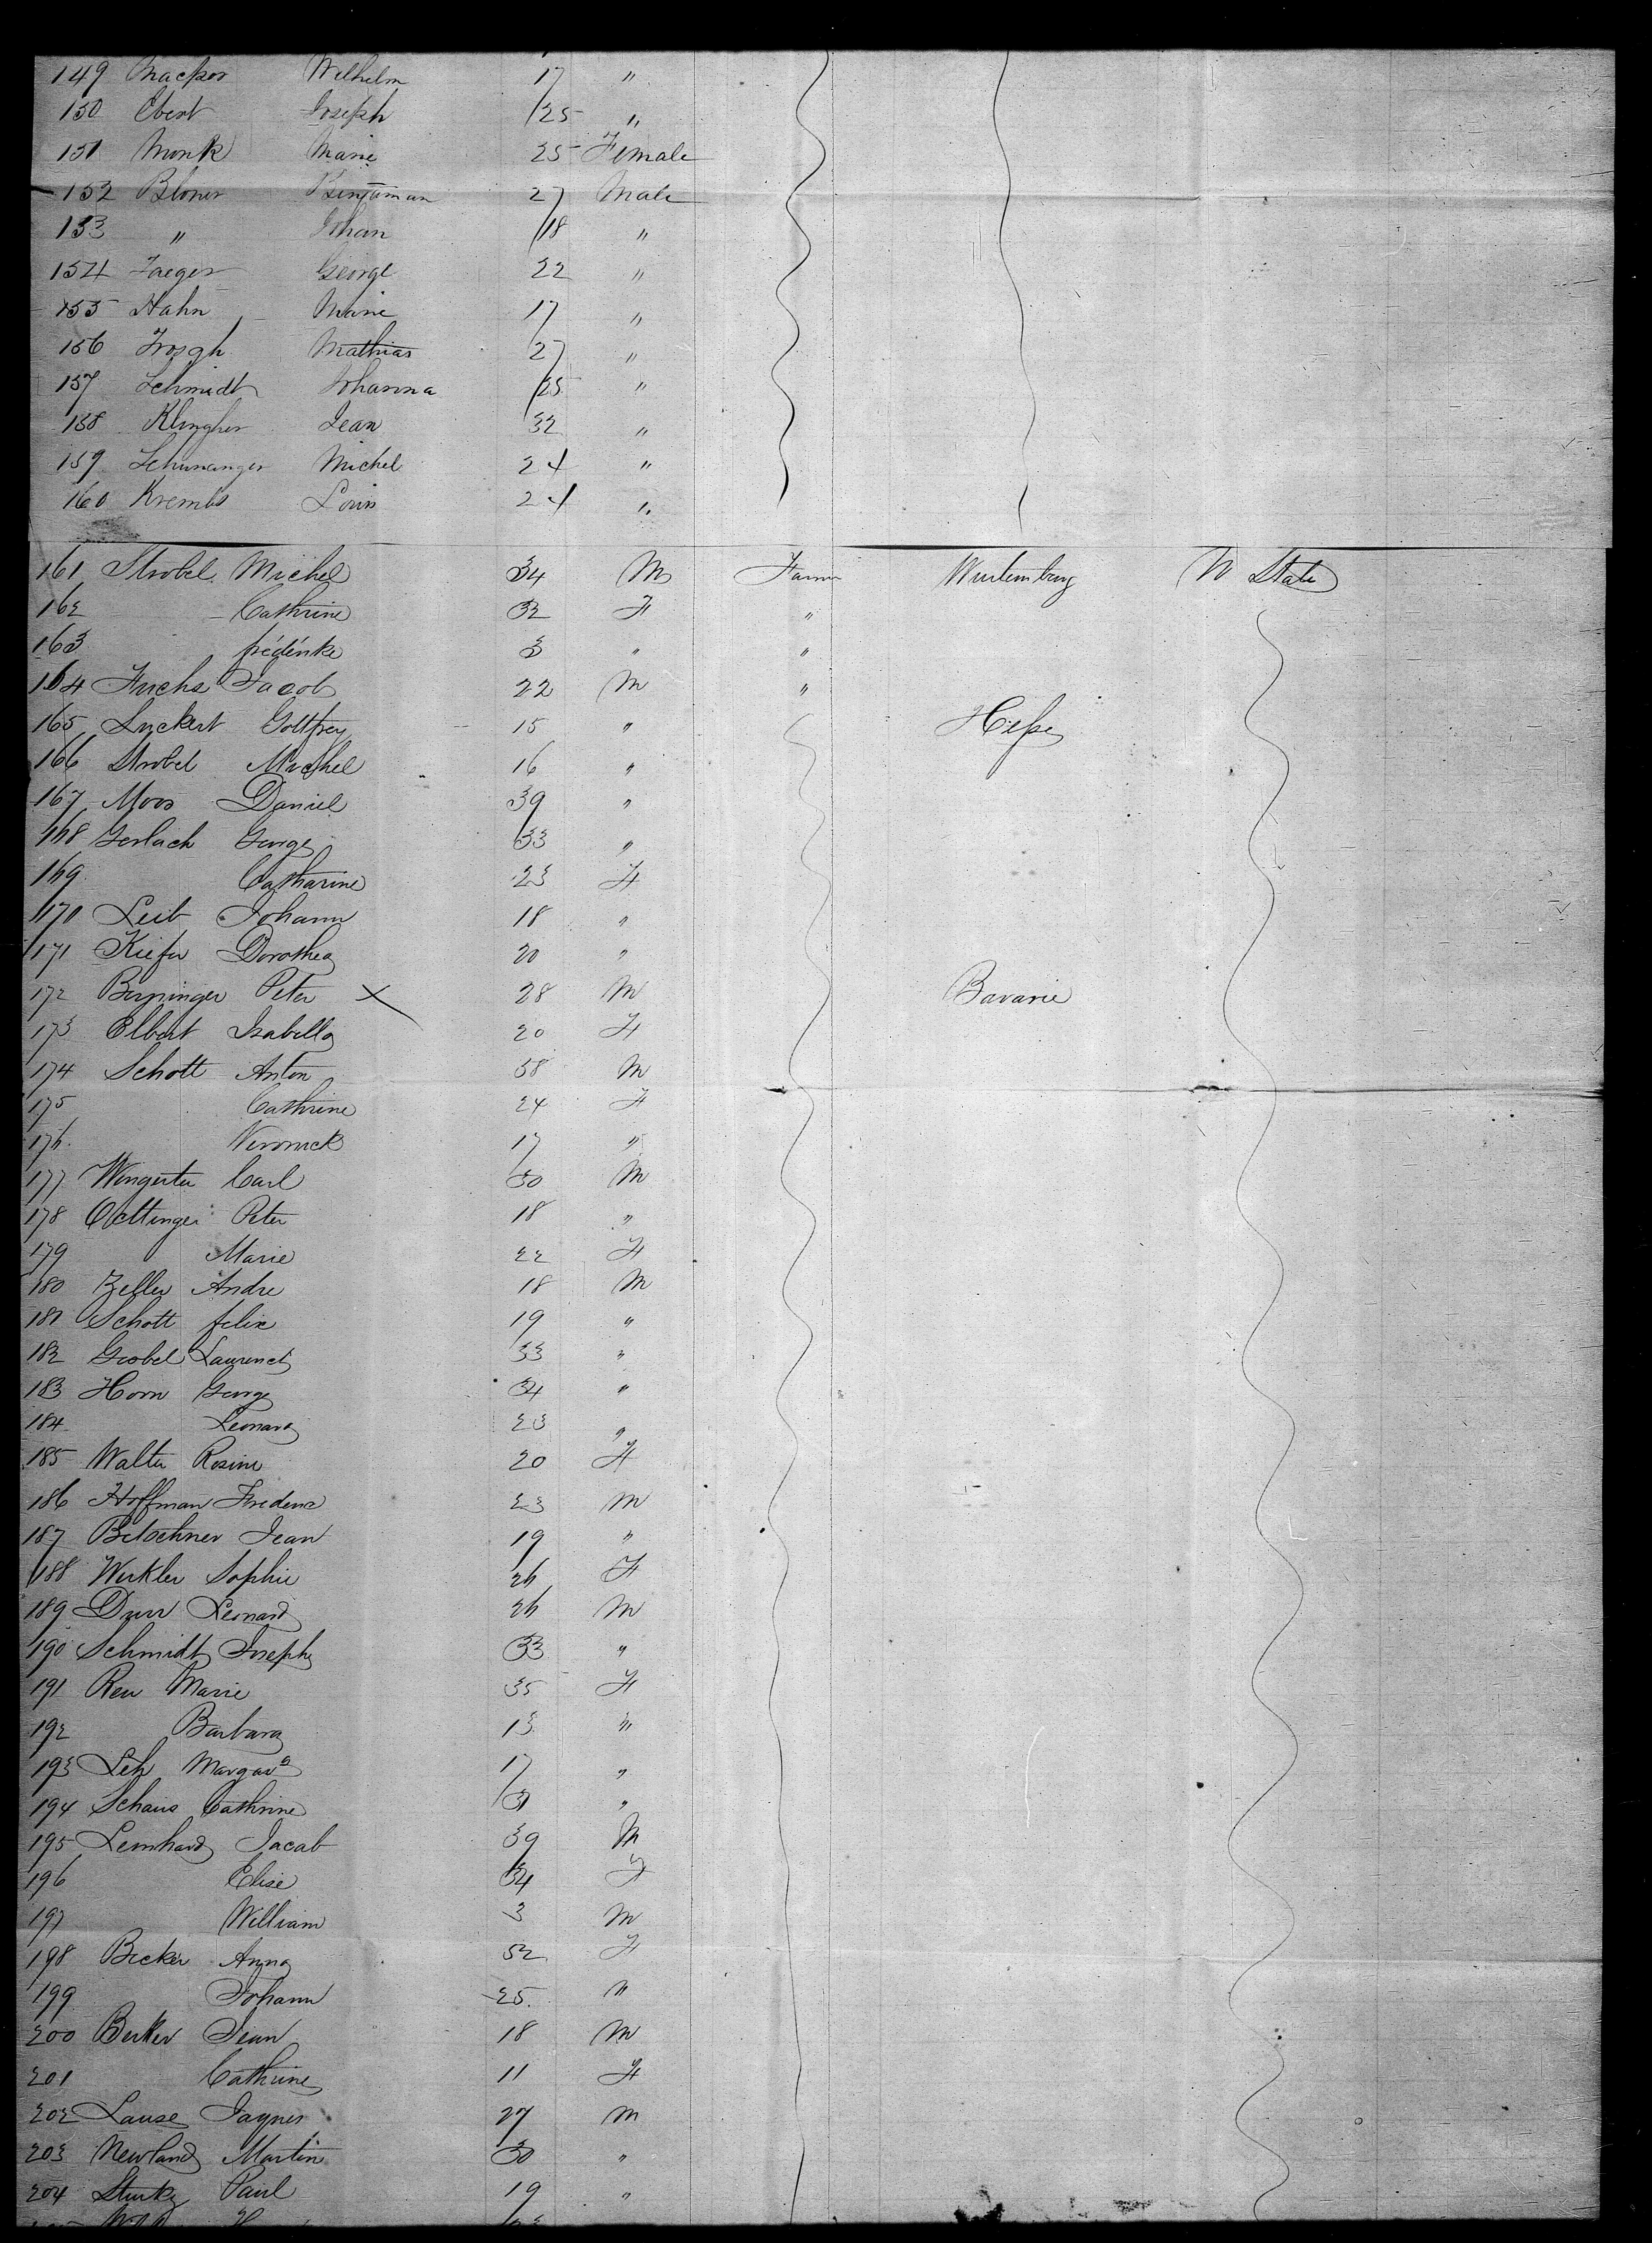 149 Wilhelm 17 "
150 Ebert Joseph 25 "
151 Monk Marie 25 Female
152 Bloner Benjaman 27 Male
153 " Johan 18 "
154 Jaeger George 22 "
155 Hahn Marie 17 "
156 Frosgh Mathias 27 "
157 Schmidt Johanna 25 "
158 Klingher Jean 32 "
159 Michel 24 "
160 Krembs Louis 24 "
161 Strobel Michel 34 M Farmer Wurtemburg U State
162 Cathrine 32 F "
163 3 " "
164 Fuchs Jacob 22 M "
165 Luckert Gottfrey 15 " Hesse
166 Strobel Michel 16 "
167 Moos Daniel 39 "
168 Gerlach George 33 "
169 Catharine 23 F
170 Leib Johann 18 "
171 Kiefer Dorothea 20 "
172 Berninger Peter X 28 M Bavarie
173 Elbert Isabella 20 F
174 Schott Anton 38 M
175 Cathrine 24 F
176 Veronick 17 "
177 Wingerter Carl 30 M
178 Oettinger Peter 18 "
179 Marie 22 F
180 Zeller Andre 18 M
181 Schott felix 19 "
182 Grobel Laurence 33 "
183 Horn George 34 "
184 Leonard 23 "
185 Walter Rosine 20 F
186 Hoffman Frederic 23 M
187 Betschner Jean 19 "
188 Winkler Sophie 26 F
189 Durr Leonard 26 M
190 Schmidt Joseph 33 "
191 Reu Marie 35 F
192 Barbara 13 "
193 Leh Margar 17 "
194 Schaus Cathrine 31 "
195 Lernhard Jacob 39 M
196 Elise 34 F
197 William 3 M
198 Becker Anna 52 F
199 Johann 25 "
200 Berker Jean 18 M
201 Cathrine 11 F
202 Lause 27 M
203 Newland Martin 30 "
204 Paul 19 "